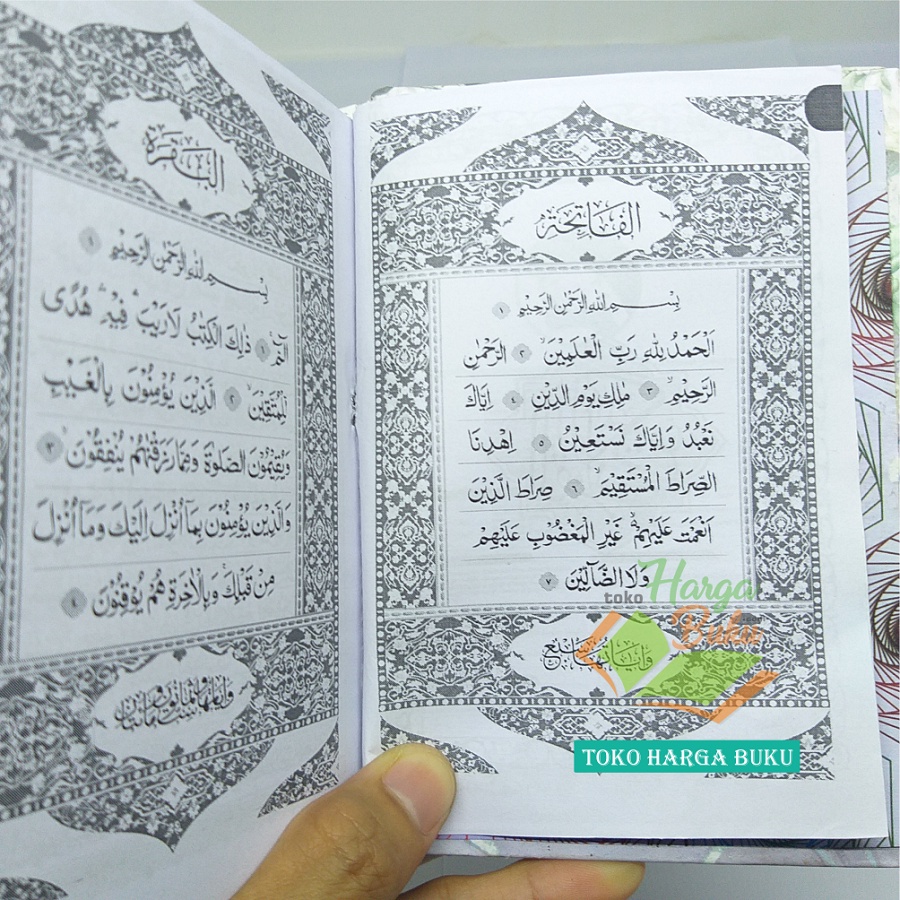 الفاتحة
بِسْمِ اللهِ الرَّحْمٰنِ الرَّحِيْمِ ١
اَلْحَمْدُ لِلّٰهِ رَبِّ الْعٰلَمِيْنَۙ ٢ الرَّحْمٰنِ
الرَّحِيْمِۙ ٣ مٰلِكِ يَوْمِ الدِّيْنِۗ ٤ اِيَّاكَ
نَعْبُدُ وَاِيَّاكَ نَسْتَعِيْنُۗ ٥ اِهْدِنَا
الصِّرَاطَ الْمُسْتَقِيْمَۙ ٦ صِرَاطَ الَّذِيْنَ
اَنْعَمْتَ عَلَيْهِمْۙ غَيْرِ الْمَغْضُوْبِ عَلَيْهِمْ
وَلَا الضَّاۤلِّيْنَ ٧
وآياتها سبع
البقرة
بِسْمِ اللهِ الرَّحْمٰنِ الرَّحِيْمِ
الۤمّۤۚ ١ ذٰلِكَ الْكِتٰبُ لَا رَيْبَۛ فِيْهِۛ هُدًى
لِّلْمُتَّقِيْنَۙ ٢ الَّذِيْنَ يُؤْمِنُوْنَ بِالْغَيْبِ
وَيُقِيْمُوْنَ الصَّلٰوةَ وَمِمَّا رَزَقْنٰهُمْ يُنْفِقُوْنَۙ ٣
وَالَّذِيْنَ يُؤْمِنُوْنَ بِمَآ اُنْزِلَ اِلَيْكَ وَمَآ اُنْزِلَ
مِنْ قَبْلِكَۚ وَبِالْاٰخِرَةِ هُمْ يُوْقِنُوْنَۗ ٤
toko Harga
Buku
TOKO HARGA BUKU